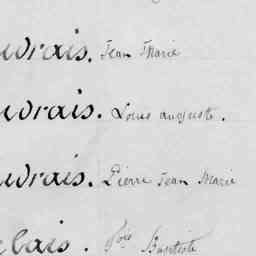 uvrais. Jean Marie
uvrais. Louis auguste.
uvrais. Pierre Jean Marie
lais. fois Baptiste